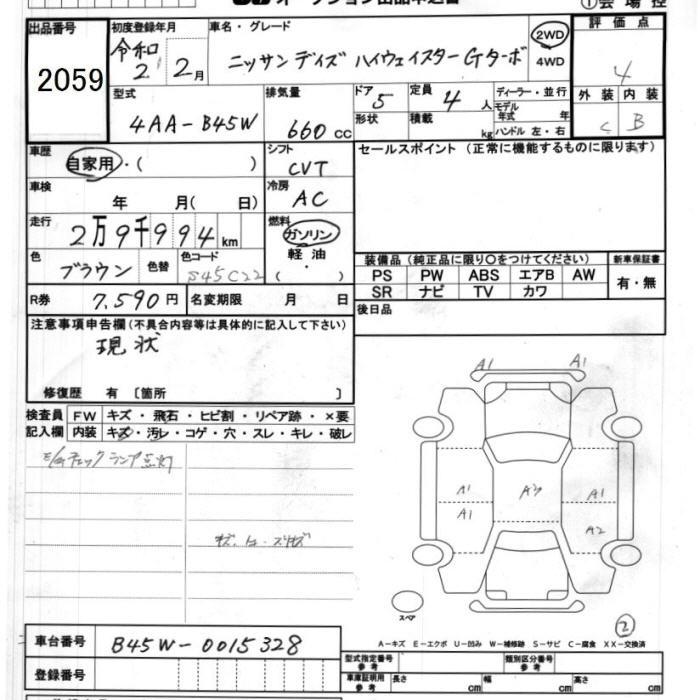 オークション出品申込書
①会場控
出品番号 2059
初度登録年月 令和 2年 2月
車名・グレード ニッサン デイズ ハイウェイスター Gターボ
2WD
4WD
評価点 4
外装 C 内装 B
型式 4AA-B45W
排気量 660 CC
ドア 5
形状
定員 4 人
積載 kg
ディーラー・並行
モデル年式 年
ハンドル 左・右
車歴 自家用・( )
車検 年 月( 日)
走行 2万9千994km
色 ブラウン 色替 色コード S45C22
R券 7,590円 名変期限 月 日
シフト CVT
冷房 AC
燃料 ガソリン
軽油
・
( )
セールスポイント(正常に機能するものに限ります)
装備品(純正品に限り○をつけてください)
PS PW ABS エアB AW
SR ナビ TV カワ
新車保証書
有・無
後日品
注意事項申告欄(不具合内容等は具体的に記入して下さい)
現状
修復歴 有 〔箇所 〕
検査員記入欄
FW キズ・飛石・ヒビ割・リペア跡・×要
内装 キズ・汚レ・コゲ・穴・スレ・キレ・破レ
チェックランプ点灯
A1 A1
A1 A3 A1
A1 A2
スペア
②
A-キズ E-エクボ U-凹み W-補修跡 S-サビ C-腐食 XX-交換済
車台番号 B45W-0015328
登録番号
型式指定番号 参考
類別区分番号 参考
車庫証明用 参考 長さ cm 幅 cm 高さ cm